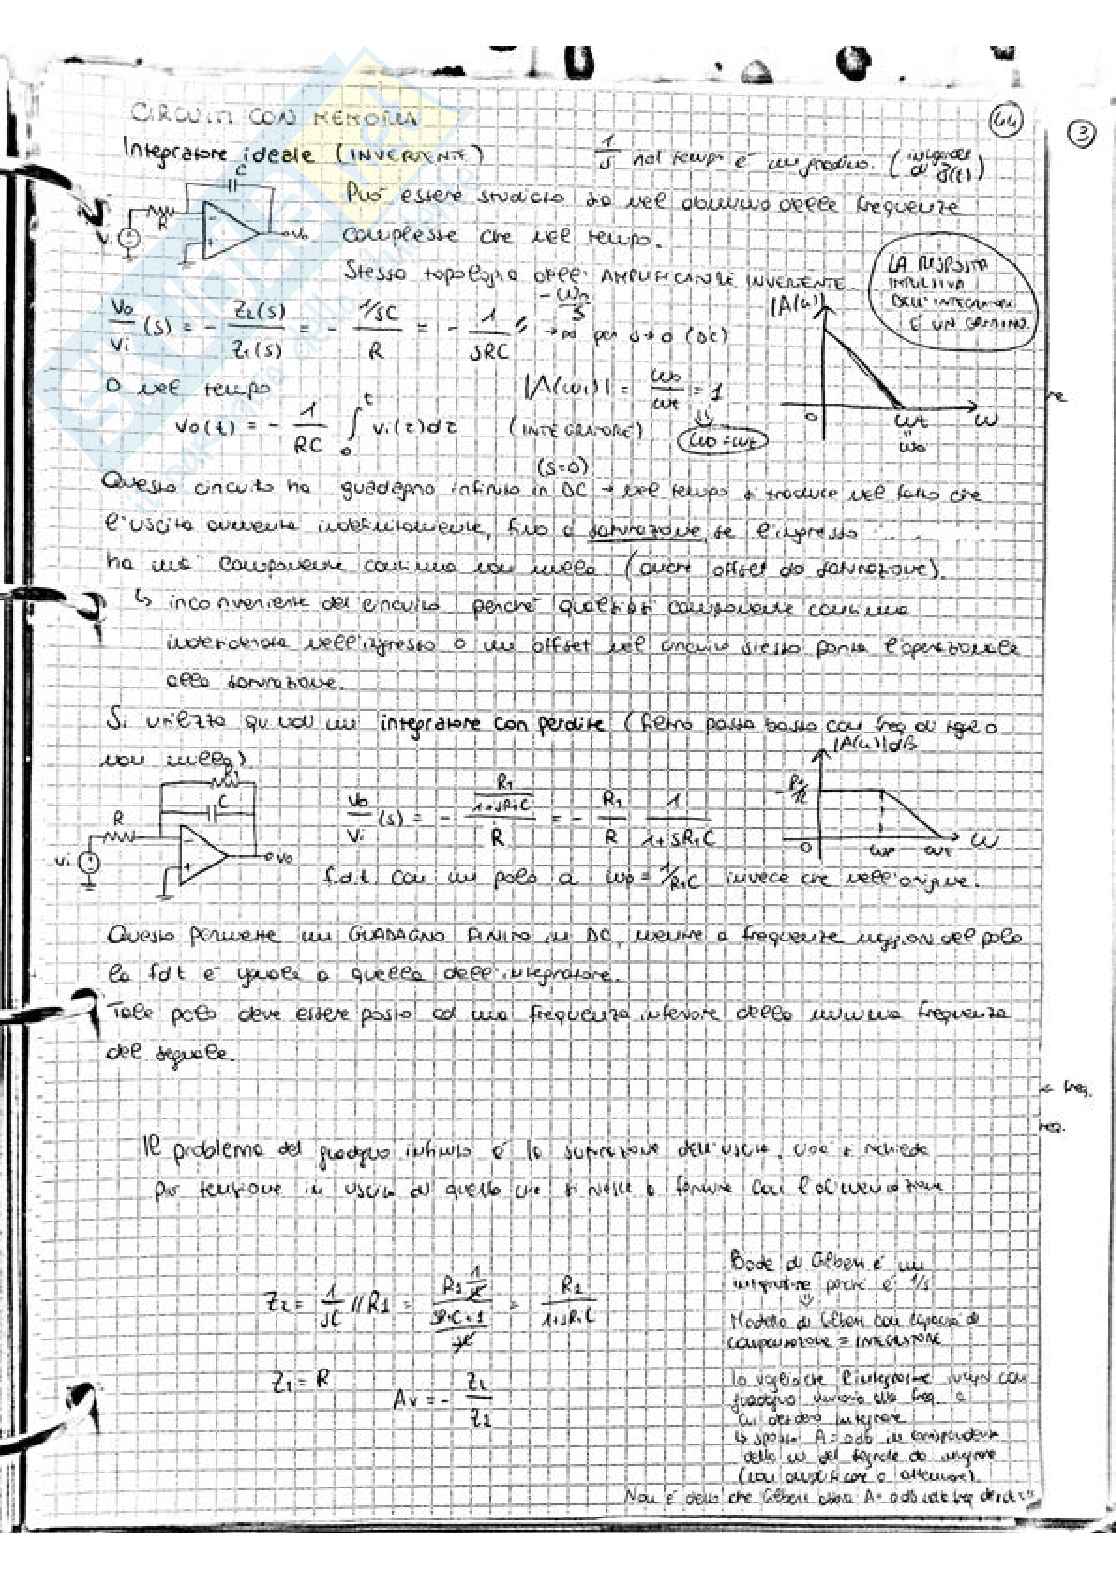 CIRCUITI CON MEMORIA
44
3
Integratore ideale (INVERTENTE)
1/s nel tempo è un gradino (integrale di δ(t))
C
R
Vi
Vo
Può essere studiato sia nel dominio delle frequenze
complesse che nel tempo.
Stessa topologia dell'AMPLIFICATORE INVERTENTE
LA RISPOSTA
IMPULSIVA
DELL'INTEGRATORE
È UN GRADINO
Vo/Vi (s) = - Z2(s)/Z1(s) = - 1/sC / R = - 1/sRC
- ω0/s
→ ∞ per s→0 (DC)
|A(ω)|
0
ωt
ω0
ω
O nel tempo
|A(ωt)| = ω0/ωt = 1
vo(t) = - 1/RC ∫ vi(τ)dτ (INTEGRATORE)
ω0=ωt
(s=0)
Questo circuito ha guadagno infinito in DC → nel tempo si traduce nel fatto che
l'uscita aumenta indefinitamente, fino a saturazione, se l'ingresso
ha una componente continua non nulla (anche offset da saturazione).
↳ inconveniente del circuito perché qualsiasi componente continua
indesiderata nell'ingresso o un offset nel circuito stesso porta l'operazionale
alla saturazione.
Si utilizza quindi un integratore con perdite (filtro passa basso con freq di taglio
non nulla).
R1
C
R
Vi
Vo
Vo/Vi (s) = - R1/(1+sR1C) / R = - R1/R 1/(1+sR1C)
|A(ω)|dB
R1/R
0
ωp
ωt
ω
f.d.t. con un polo a ωp = 1/R1C invece che nell'origine.
Questo permette un GUADAGNO FINITO in DC, mentre a frequenze maggiori del polo
la fdt è uguale a quella dell'integratore.
Tale polo deve essere posto ad una frequenza inferiore della minima frequenza
del segnale.
← freq.
Il problema del guadagno infinito è la saturazione dell'uscita, cioè si richiede
più tensione in uscita di quella che si riesce a fornire con l'alimentazione
Z2 = 1/sC // R1 = R1 1/sC / (sR1C+1)/sC = R1/(1+sR1C)
Z1 = R
Av = - Z2/Z1
integratore perché è 1/s
compensazione = INTEGRATORE
Io voglio che l'integratore
cui desidero integrare
della ω del segnale da integrare
(non amplificare o attenuare).